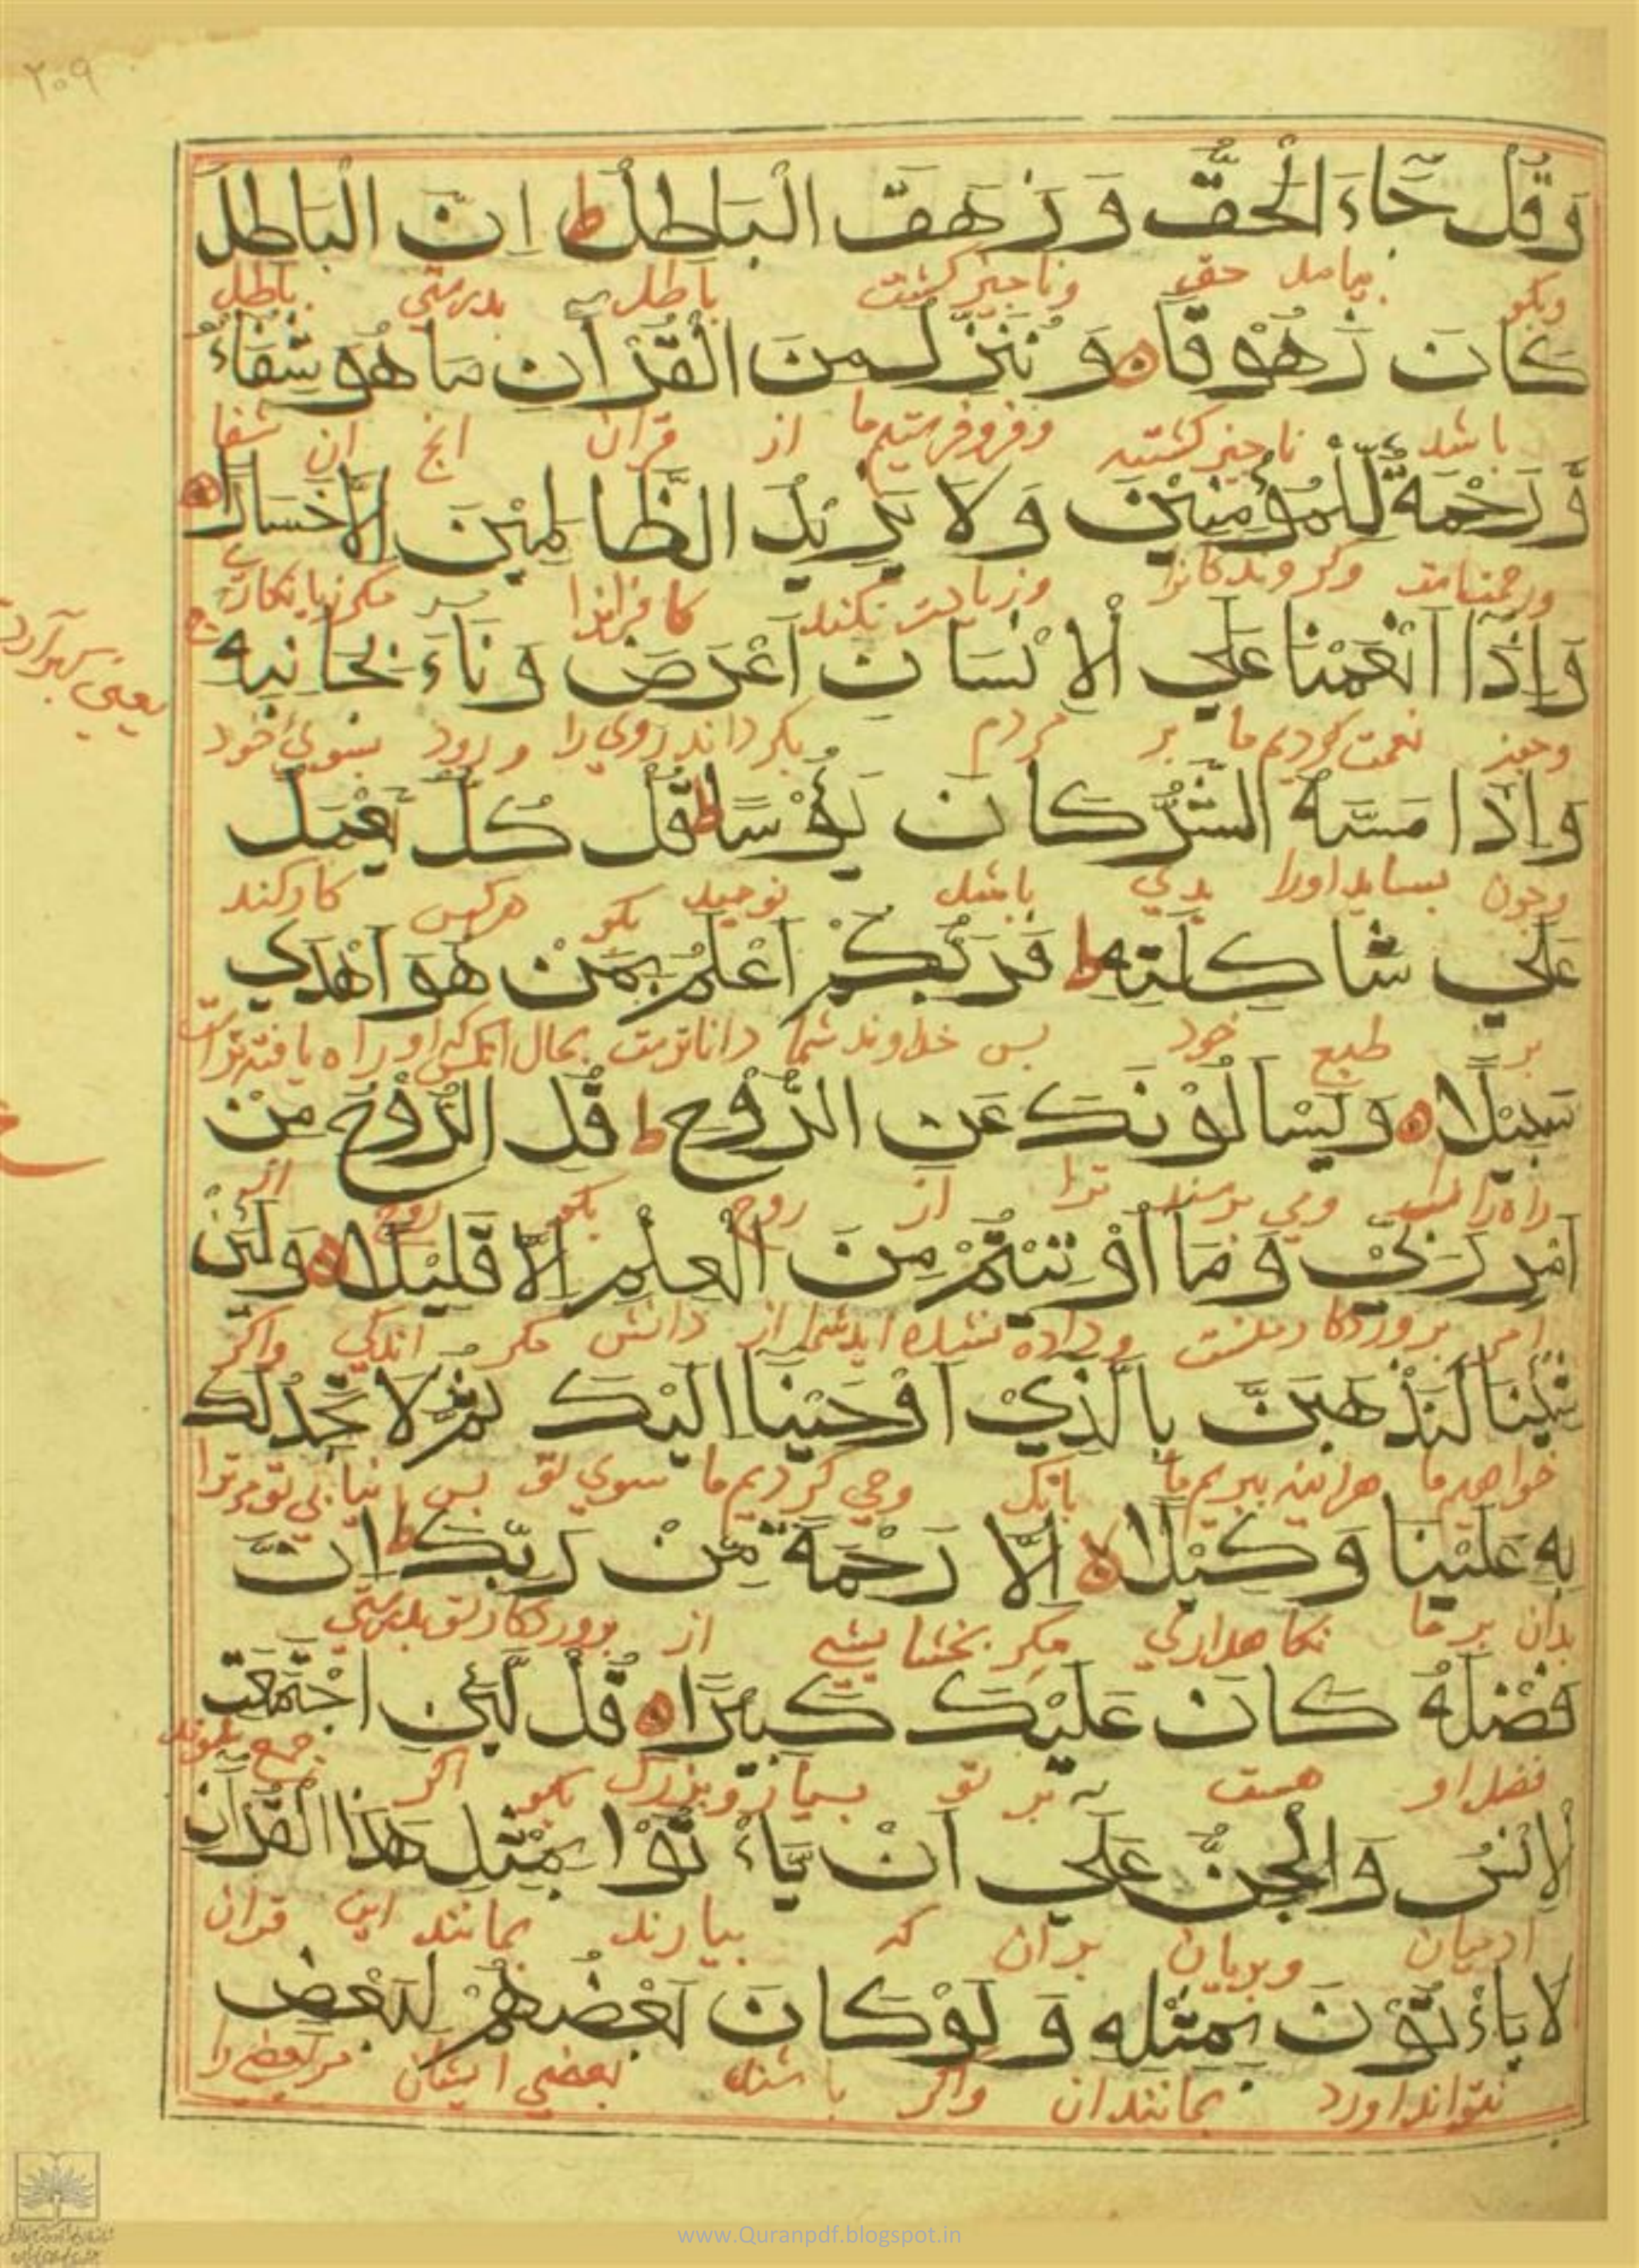 ٢٠٩
وَقُلْ جَاءَ الْحَقُّ وَزَهَقَ الْبَاطِلُ ط اِنَّ الْبَاطِلَ
وبكو بيامد حق وناجيز كشت باطل بدرستى باطل
كَانَ زَهُوْقًا وَنُنَزِّلُ مِنَ الْقُرْآنِ مَا هُوَ شِفَاءٌ
باشد ناجيز كشته وفروفرستيم ما از قران انچ ان شفا
وَّرَحْمَةٌ لِّلْمُؤْمِنِيْنَ وَلَا يَزِيْدُ الظَّالِمِيْنَ اِلَّا خَسَارًا
ورحمتاست وزيادت نكند كافرانرا مكر زيانكارى
وَاِذَا اَنْعَمْنَا عَلَي الْاِنْسَانِ اَعْرَضَ وَنَاءَ بِجَانِبِهِ ج
وچون نعمت كرديم ما بر مردم بكرداند روى را ورود بسوي خود
وَاِذَا مَسَّهُ الشَّرُّ كَانَ يَؤُسًا ط قُلْ كُلٌّ يَّعْمَلُ
وچون بسايد اورا بدي باشد نوميد بكو هركس كار كند
عَلَي شَاكِلَتِهِ ط فَرَبُّكُمْ اَعْلَمُ بِمَنْ هُوَ اَهْدَي
بر طبع خود بس خداوند شما داناترست بحال انكس كه او راه يافته تراست
سَبِيْلًا وَيَسْاَلُوْنَكَ عَنِ الرُّوْحِ ط قُلِ الرُّوْحُ مِنْ
ومي برسند ترا از روح بكو روح از
اَمْرِ رَبِّيْ وَمَا اُوْتِيْتُمْ مِنَ الْعِلْمِ اِلَّا قَلِيْلًا وَلَئِنْ
امر بروردكار منست وداده نشده ايد شما از دانش مكر اندكي واكر
شِئْنَا لَنَذْهَبَنَّ بِالَّذِيْ اَوْحَيْنَا اِلَيْكَ ثُمَّ لَا تَجِدُ لَكَ
خواهيم ما هراينه ببريم ما بانك وحي كرديم ما سوي تو بس نيابي تو مر ترا
بِهِ عَلَيْنَا وَكِيْلًا لا اِلَّا رَحْمَةً مِّنْ رَبِّكَ ط اِنَّ
بدان بر ما نكاهداري مكر بخشايشي از بروردكار تو بدرستى
فَضْلَهُ كَانَ عَلَيْكَ كَبِيْرًا قُلْ لَّئِنِ اجْتَمَعَتِ
فضل او هست بر تو بسيار وبزرك بكو اكر جمع شوند
الْاِنْسُ وَالْجِنُّ عَلَي اَنْ يَاْءتُوْا بِمِثْلِ هَذَا الْقُرْآنِ
ادميان وبريان بران كه بيارند بمانند اين قران
لَا يَاْءتُوْنَ بِمِثْلِهِ وَلَوْ كَانَ بَعْضُهُمْ لِبَعْضٍ
نتوانند اورد بمانند ان واكر باشند بعضي ايشان مر بعضي را
www.Quranpdf.blogspot.in